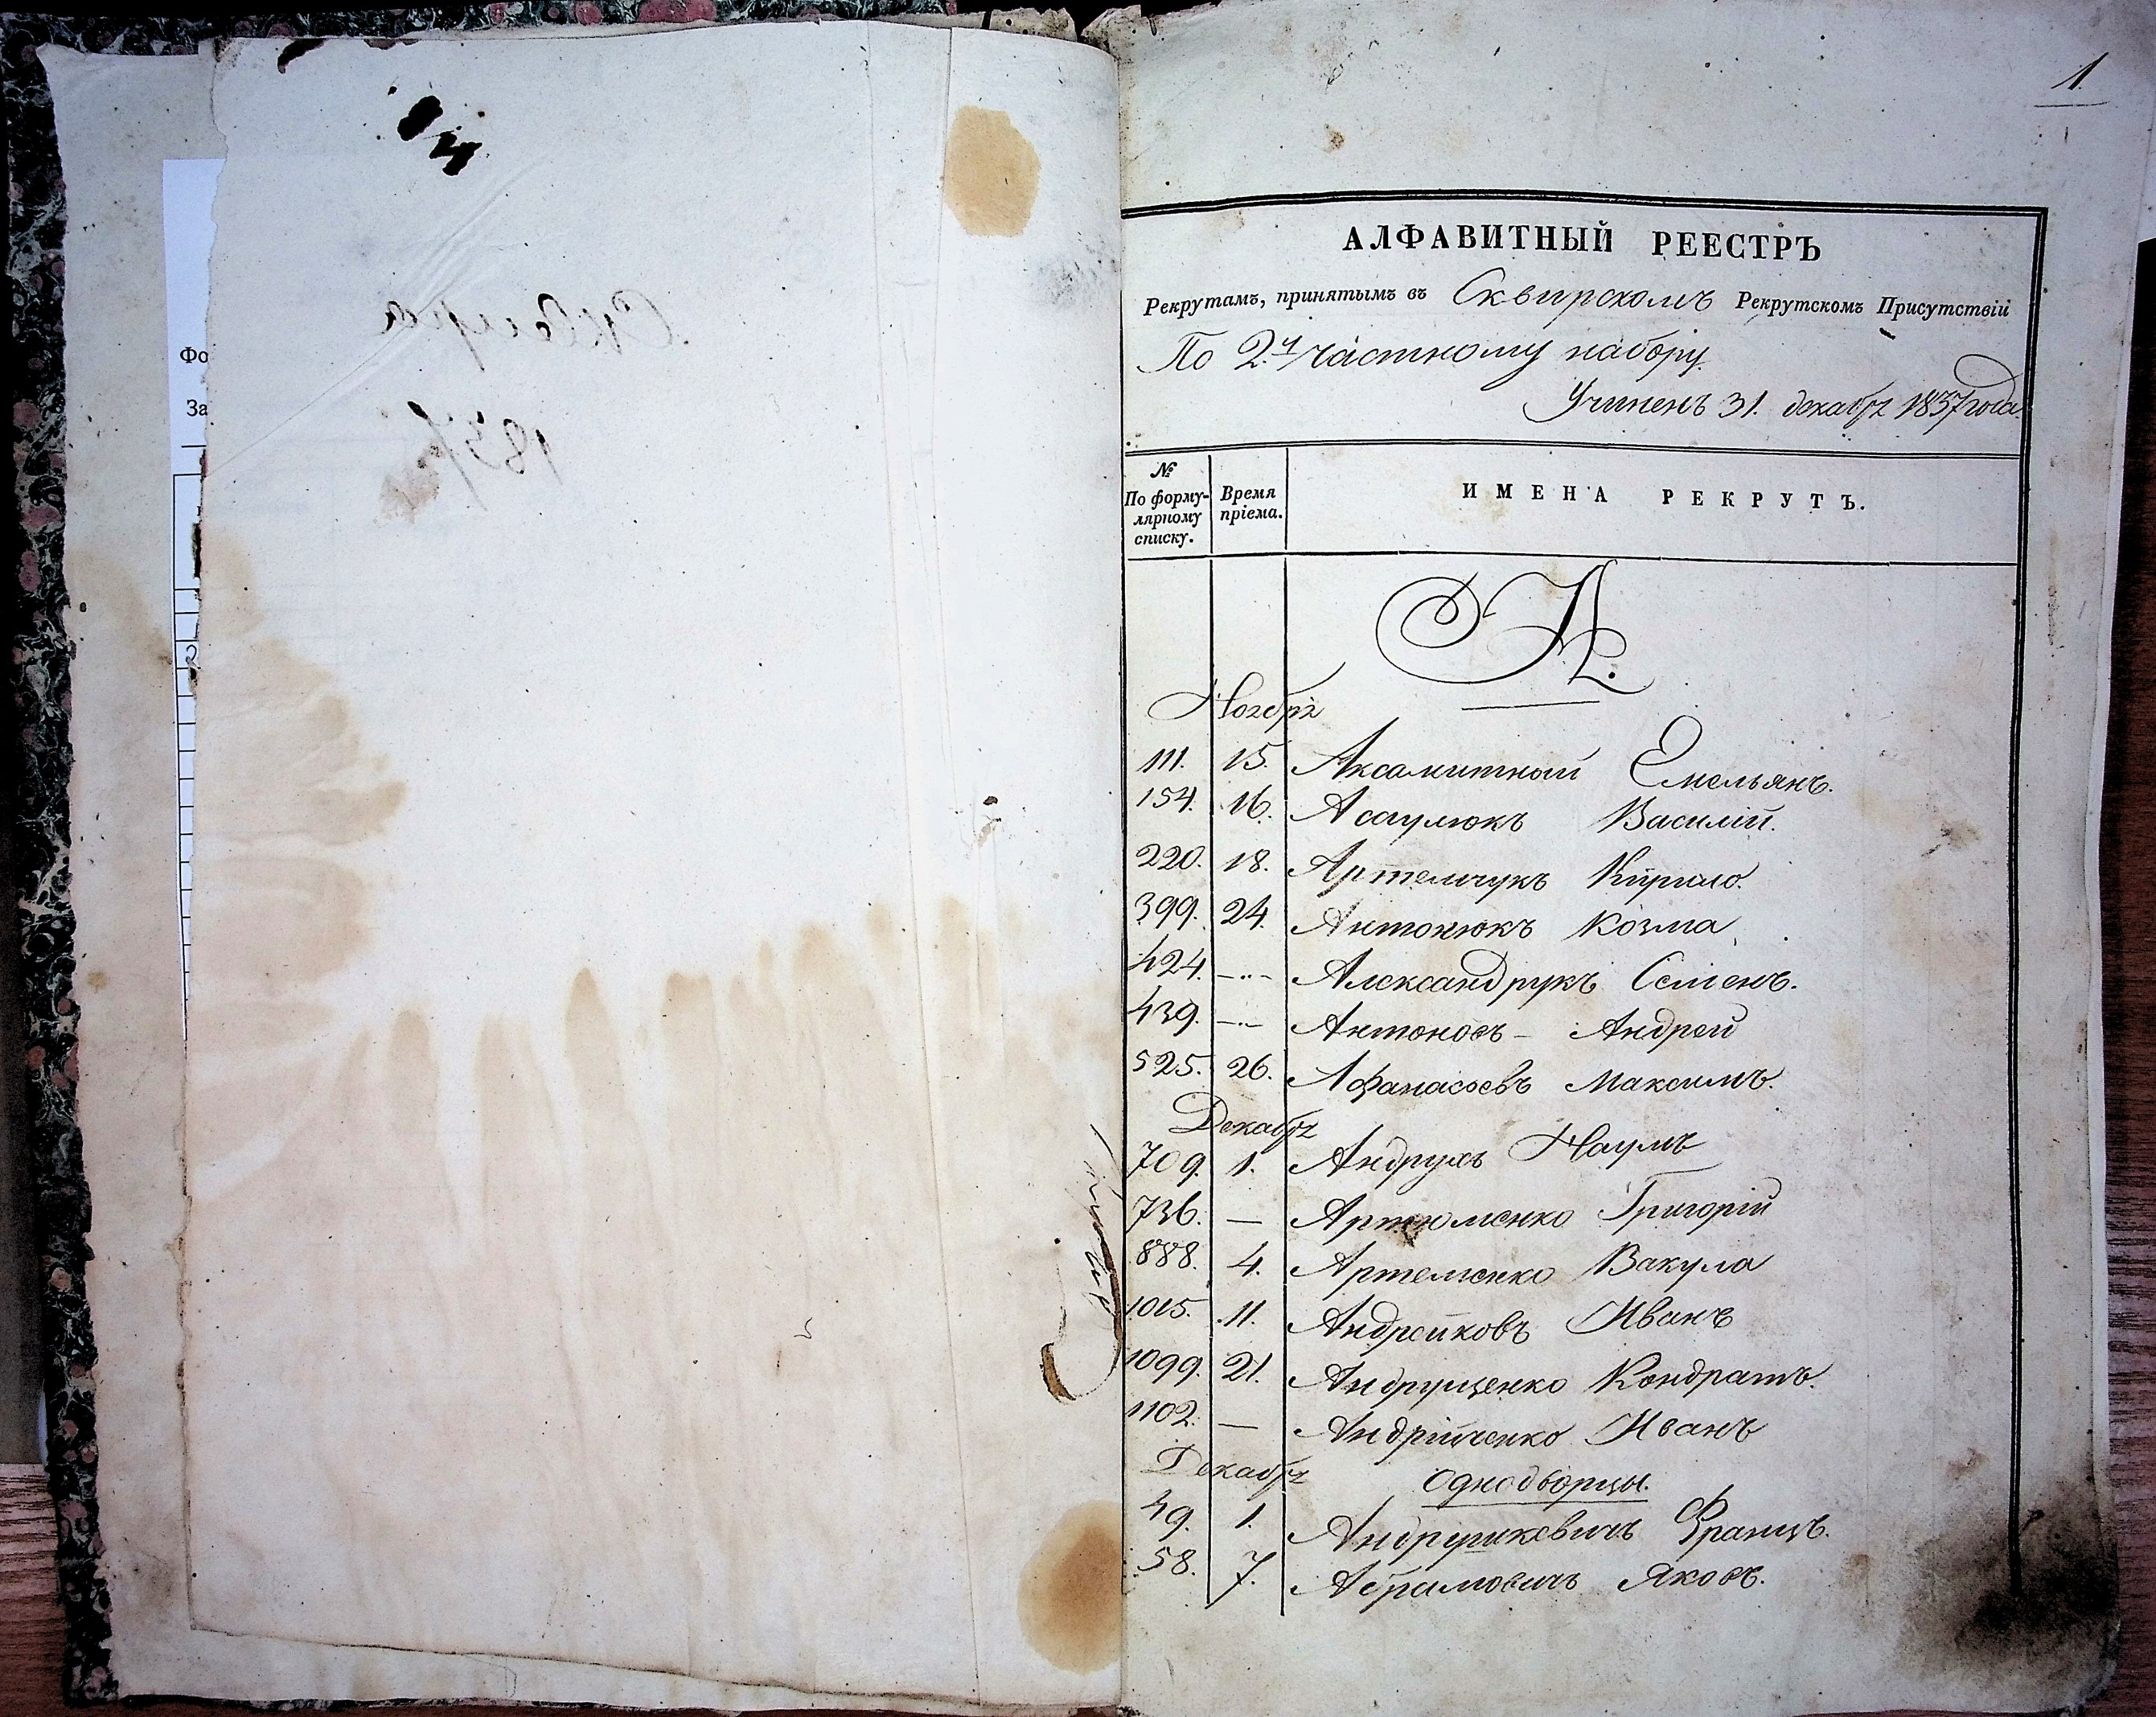 Фо
За
Сквира
1837
1.
АЛФАВИТНЫЙ РЕЕСТРЪ
Рекрутамъ, принятымъ въ Сквирскомъ Рекрутскомъ Присутствіи
По 2й частному набору.
Учиненъ 31. декабря 1837 года.
№ По формулярному списку. Время пріема. ИМЕНА РЕКРУТЪ.
А.
Ноября
111. 15. Аксамитный Емельянъ.
154. 16. Асаулюкъ Василій.
220. 18. Артемчукъ Кирило.
399. 24. Антонюкъ Козма
424. —"— Александрукъ Семенъ.
439. —"— Антоновъ - Андрей
525. 26. Афанасоевъ Максимъ.
Декабря
709. 1. Андрухъ Наумъ
736. — Артюменко Григорій
888. 4. Артеменко Вакула
1015. 11. Андрейковъ Иванъ
1099. 21. Андрущенко Кондратъ.
1102. — Андрійченко Иванъ
Декабря Однодворцы.
49. 1. Андрушкевичъ Францъ.
58. 7. Абрамовичъ Яковъ.